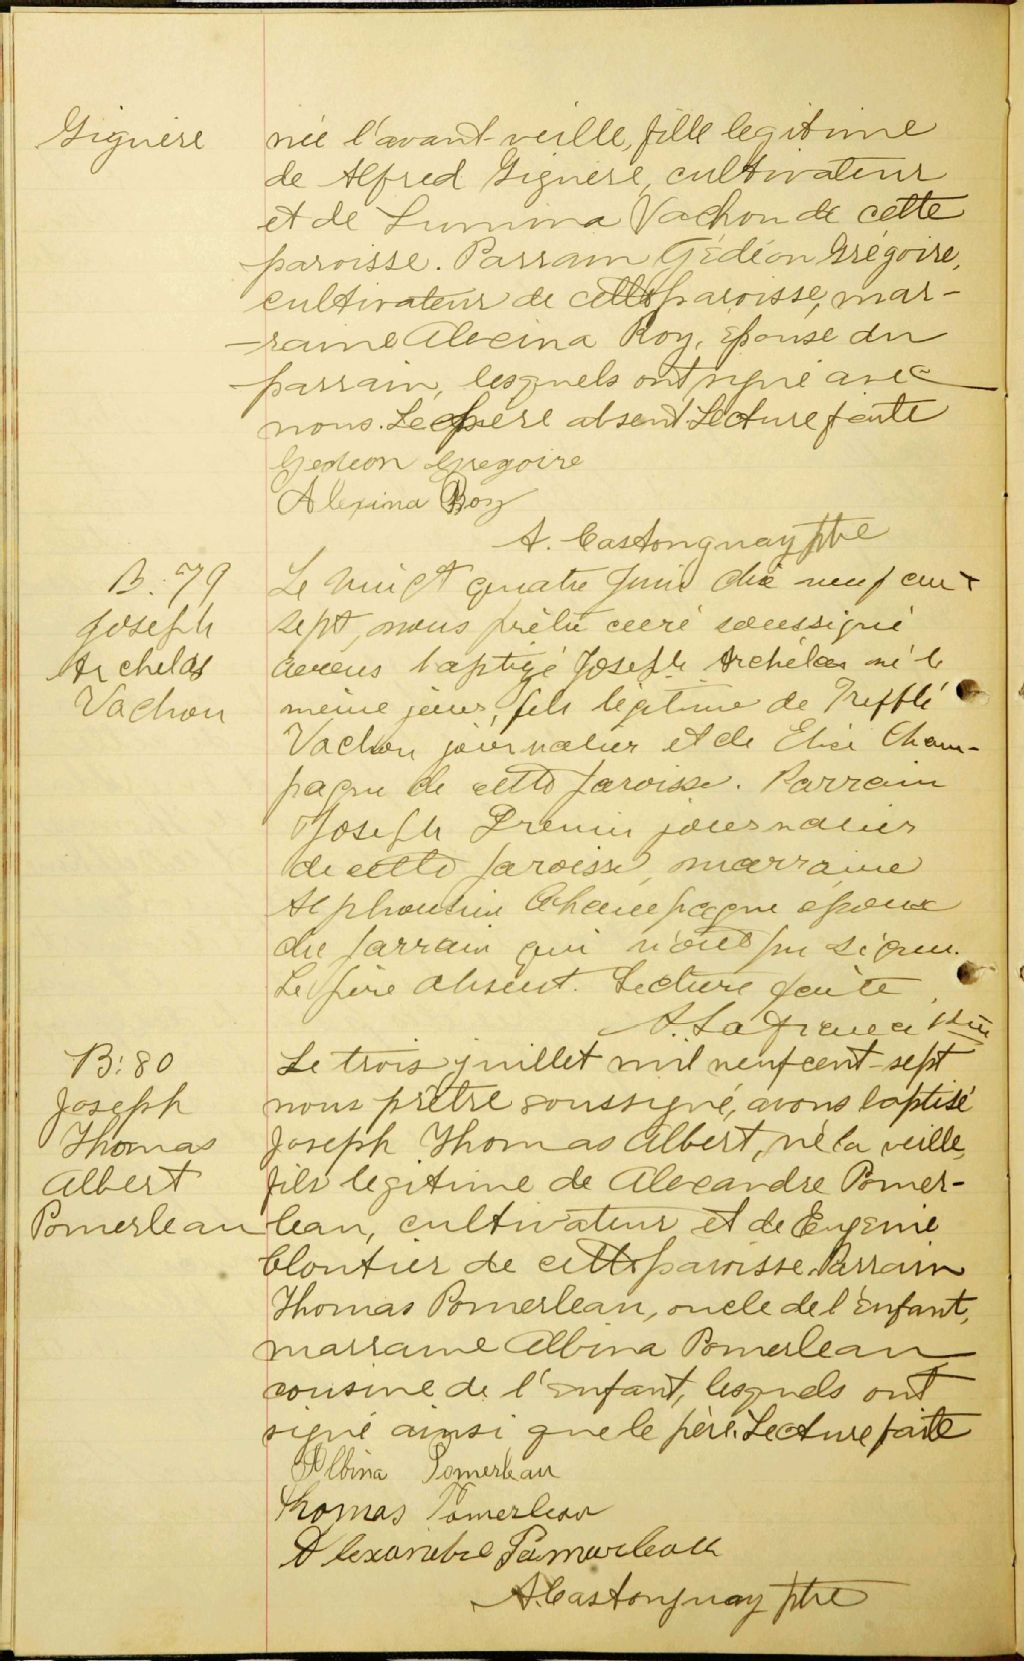 Giguère
née l'avant-veille, fille legitime
de Alfred Giguère, cultivateur
et de Lumina Vachon de cette
paroisse. Parrain Gédéon Grégoire,
cultivateur de cette paroisse, mar-
-raine Alexina Roy, épouse du
parrain, lesquels ont signé avec
nous. Le père absent Lecture faite
Gedeon Gregoire
Alexina Roy
A. Castonguay ptre
B. 79
Joseph
Archelas
Vachon
Le vingt quatre Juin mil neuf cent
sept, nous prêtre curé soussigné
avons baptisé Joseph Archélas né le
même jour, fils légitime de Trefflé
Vachon journalier et de Elise Cham-
pagne de cette paroisse. Parrain
Joseph Drouin journalier
de cette paroisse, marraine
Alphonsine Champagne épouse
du parrain qui n'ont pu signer.
Le père absent. Lecture faite
A. Lafrance ptre
B: 80
Joseph
Thomas
Albert
Pomerleau
Le trois juillet mil neuf cent-sept
nous prêtre soussigné, avons baptisé
Joseph Thomas Albert, né la veille,
fils legitime de Alexandre Pomer-
leau, cultivateur et de Eugenie
Cloutier de cette paroisse. Parrain
Thomas Pomerleau, oncle de l'enfant,
marraine Albina Pomerleau
cousine de l'enfant, lesquels ont
signé ainsi que le père. Lecture faite
Albina Pomerleau
Thomas Pomerleau
Alexandre Pomerleau
A. Castonguay ptre